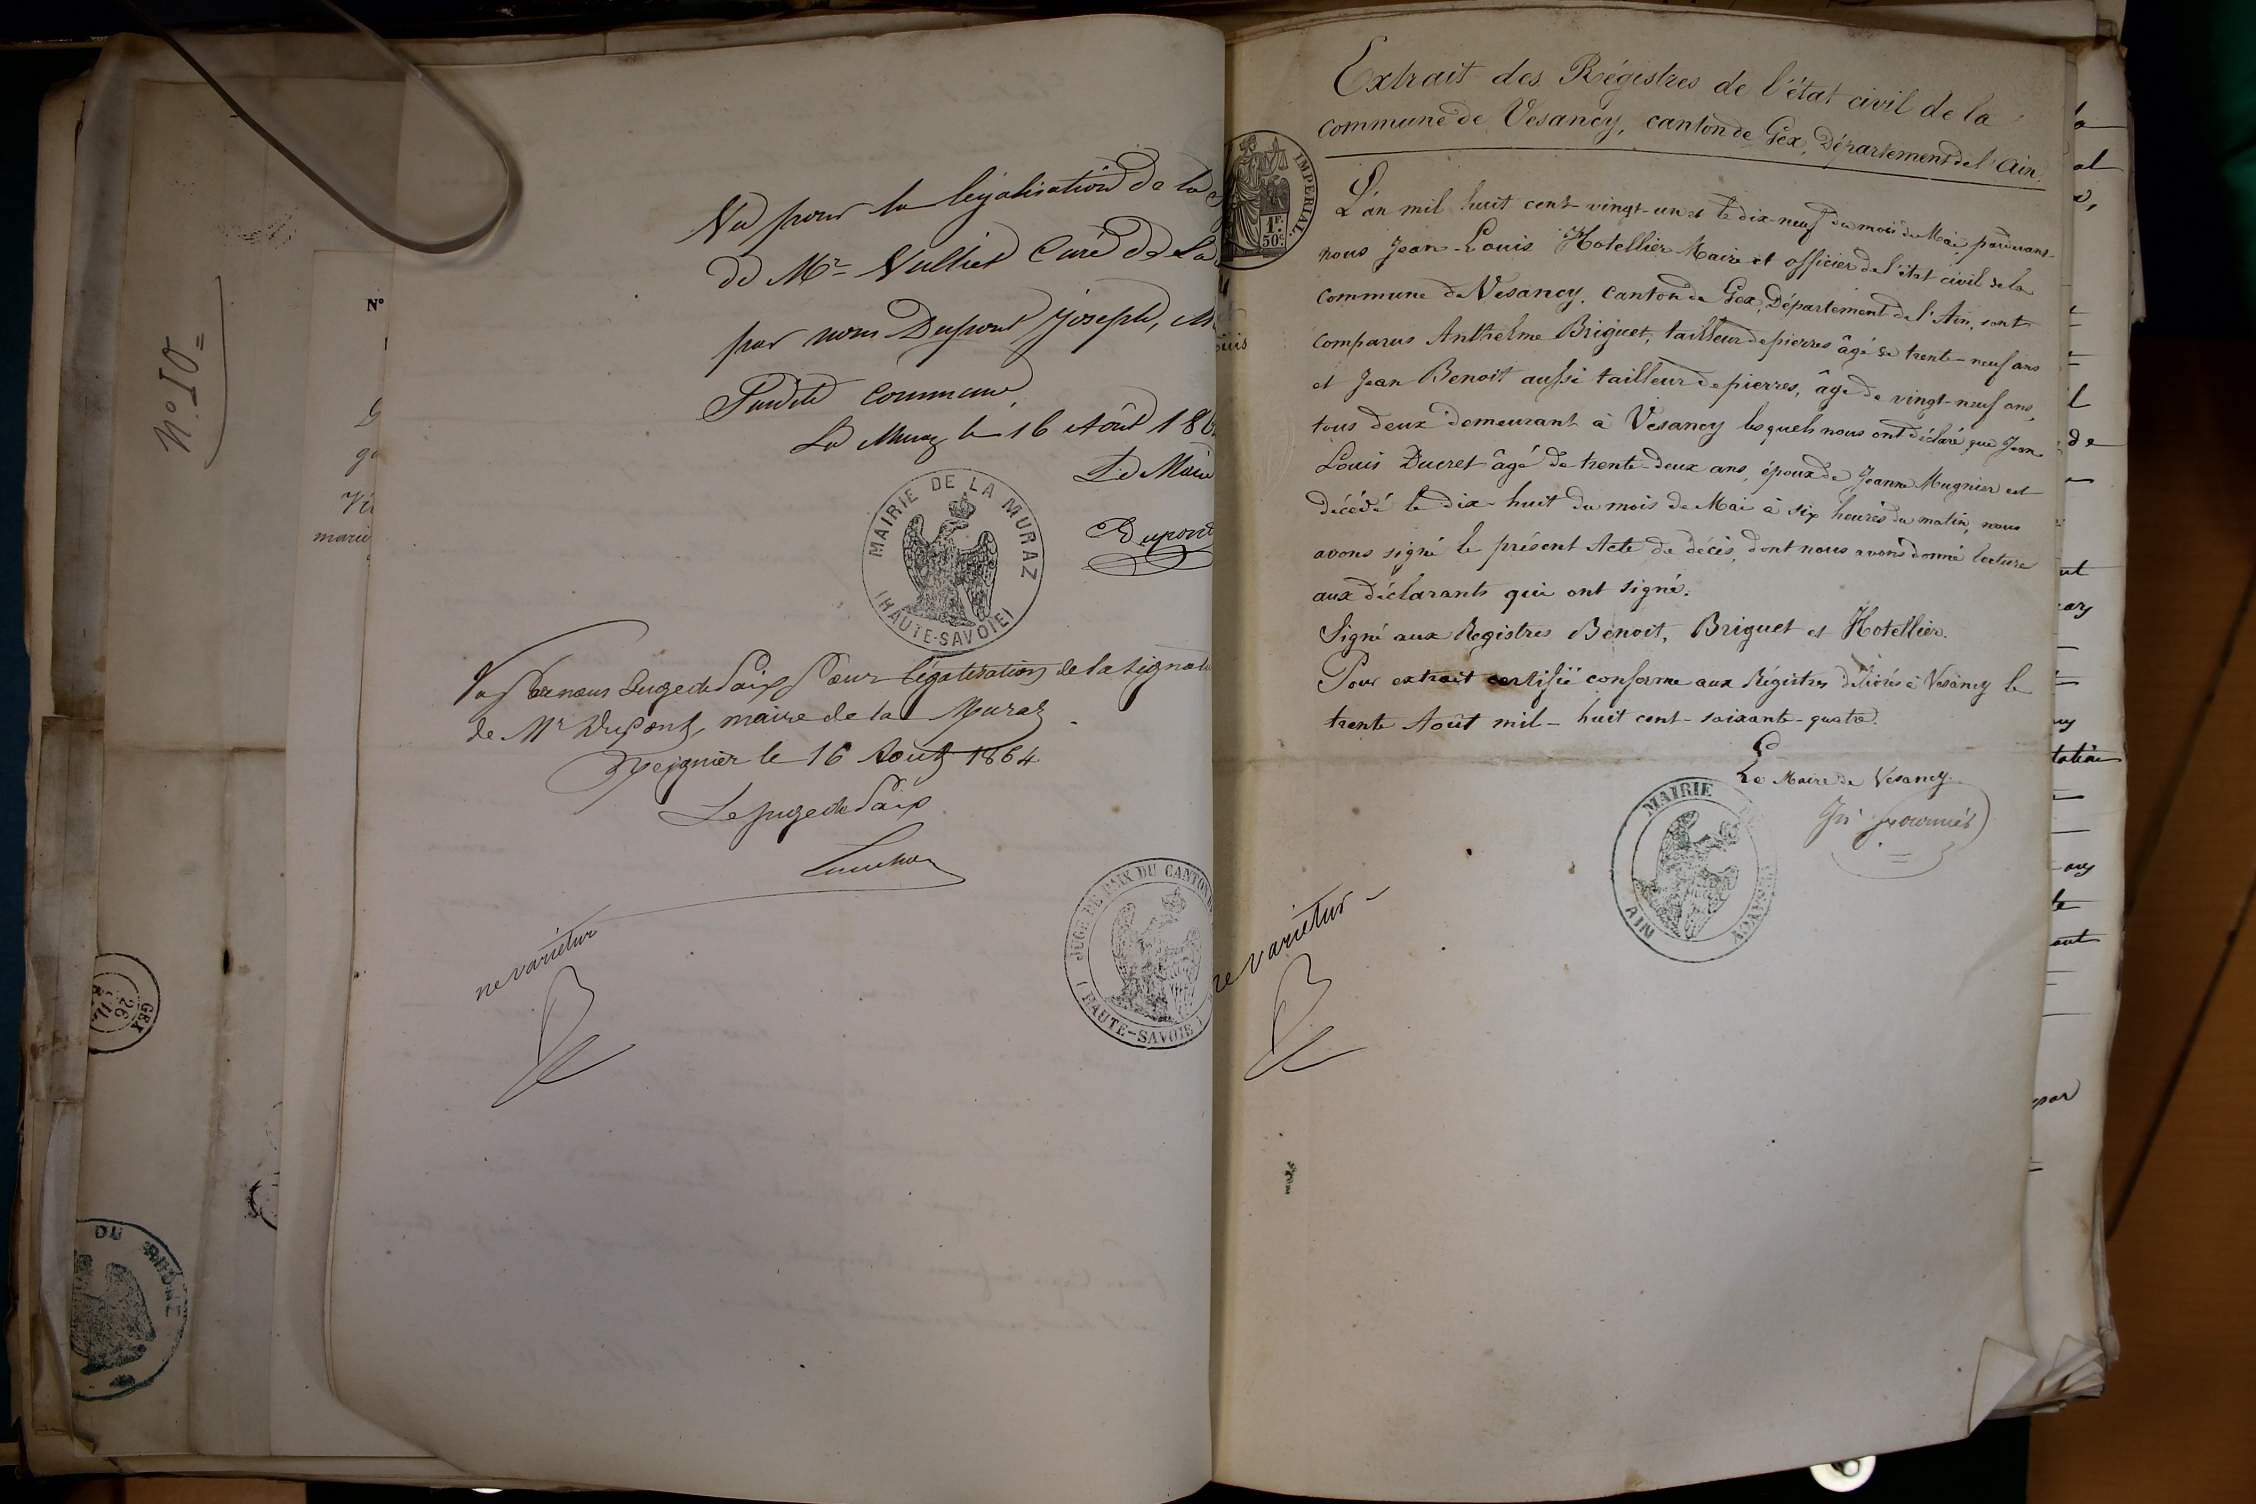 N° 10 =
N°
marie
GEX
26
DU RHÔNE
Vu pour la légalisation de la
de Mr Vulliet Curé de La
par nous Dupont Joseph,
Susdite commune,
La Muraz le 16 Août 186
Le Maire
Dupont
MAIRIE DE LA MURAZ
(HAUTE-SAVOIE)
Vu par nous Juge de Paix pour légalisation de la signat
de Mr Dupont, maire de la Muraz
Reignier le 16 Août 1864
Le Juge de Paix
ne varietur
JUGE DE PAIX DU CANTON
(HAUTE-SAVOIE)
IMPERIAL.
1F.
50c.
Extrait des Régistres de l'état civil de la
commune de Vesancy, canton de Gex, Département de l'Ain.
L'an mil huit cent vingt-un et le dix-neuf du mois de Mai, pardevant
nous Jean-Louis Hotellier Maire et officier de l'état civil de la
commune de Vesancy, canton de Gex, Département de l'Ain, sont
comparus Anthelme Briguet, tailleur de pierres âgé de trente-neuf ans
et Jean Benoit aussi tailleur de pierres, âgé de vingt-neuf ans,
tous deux demeurant à Vesancy lesquels nous ont déclaré que Jean
Louis Ducret âgé de trente-deux ans, époux de Jeanne Mugnier est
décédé le dix-huit du mois de Mai à six heures du matin, nous
avons signé le présent Acte de décès, dont nous avons donné lecture
aux déclarants qui ont signé.
Signé aux Registres Benoit, Briguet et Hotellier.
Pour extrait certifié conforme aux Régistres délivrés à Vesancy le
trente Août mil-huit cent-soixante-quatre.
Le Maire de Vesancy
MAIRIE
VESANCY
AIN
ne varietur